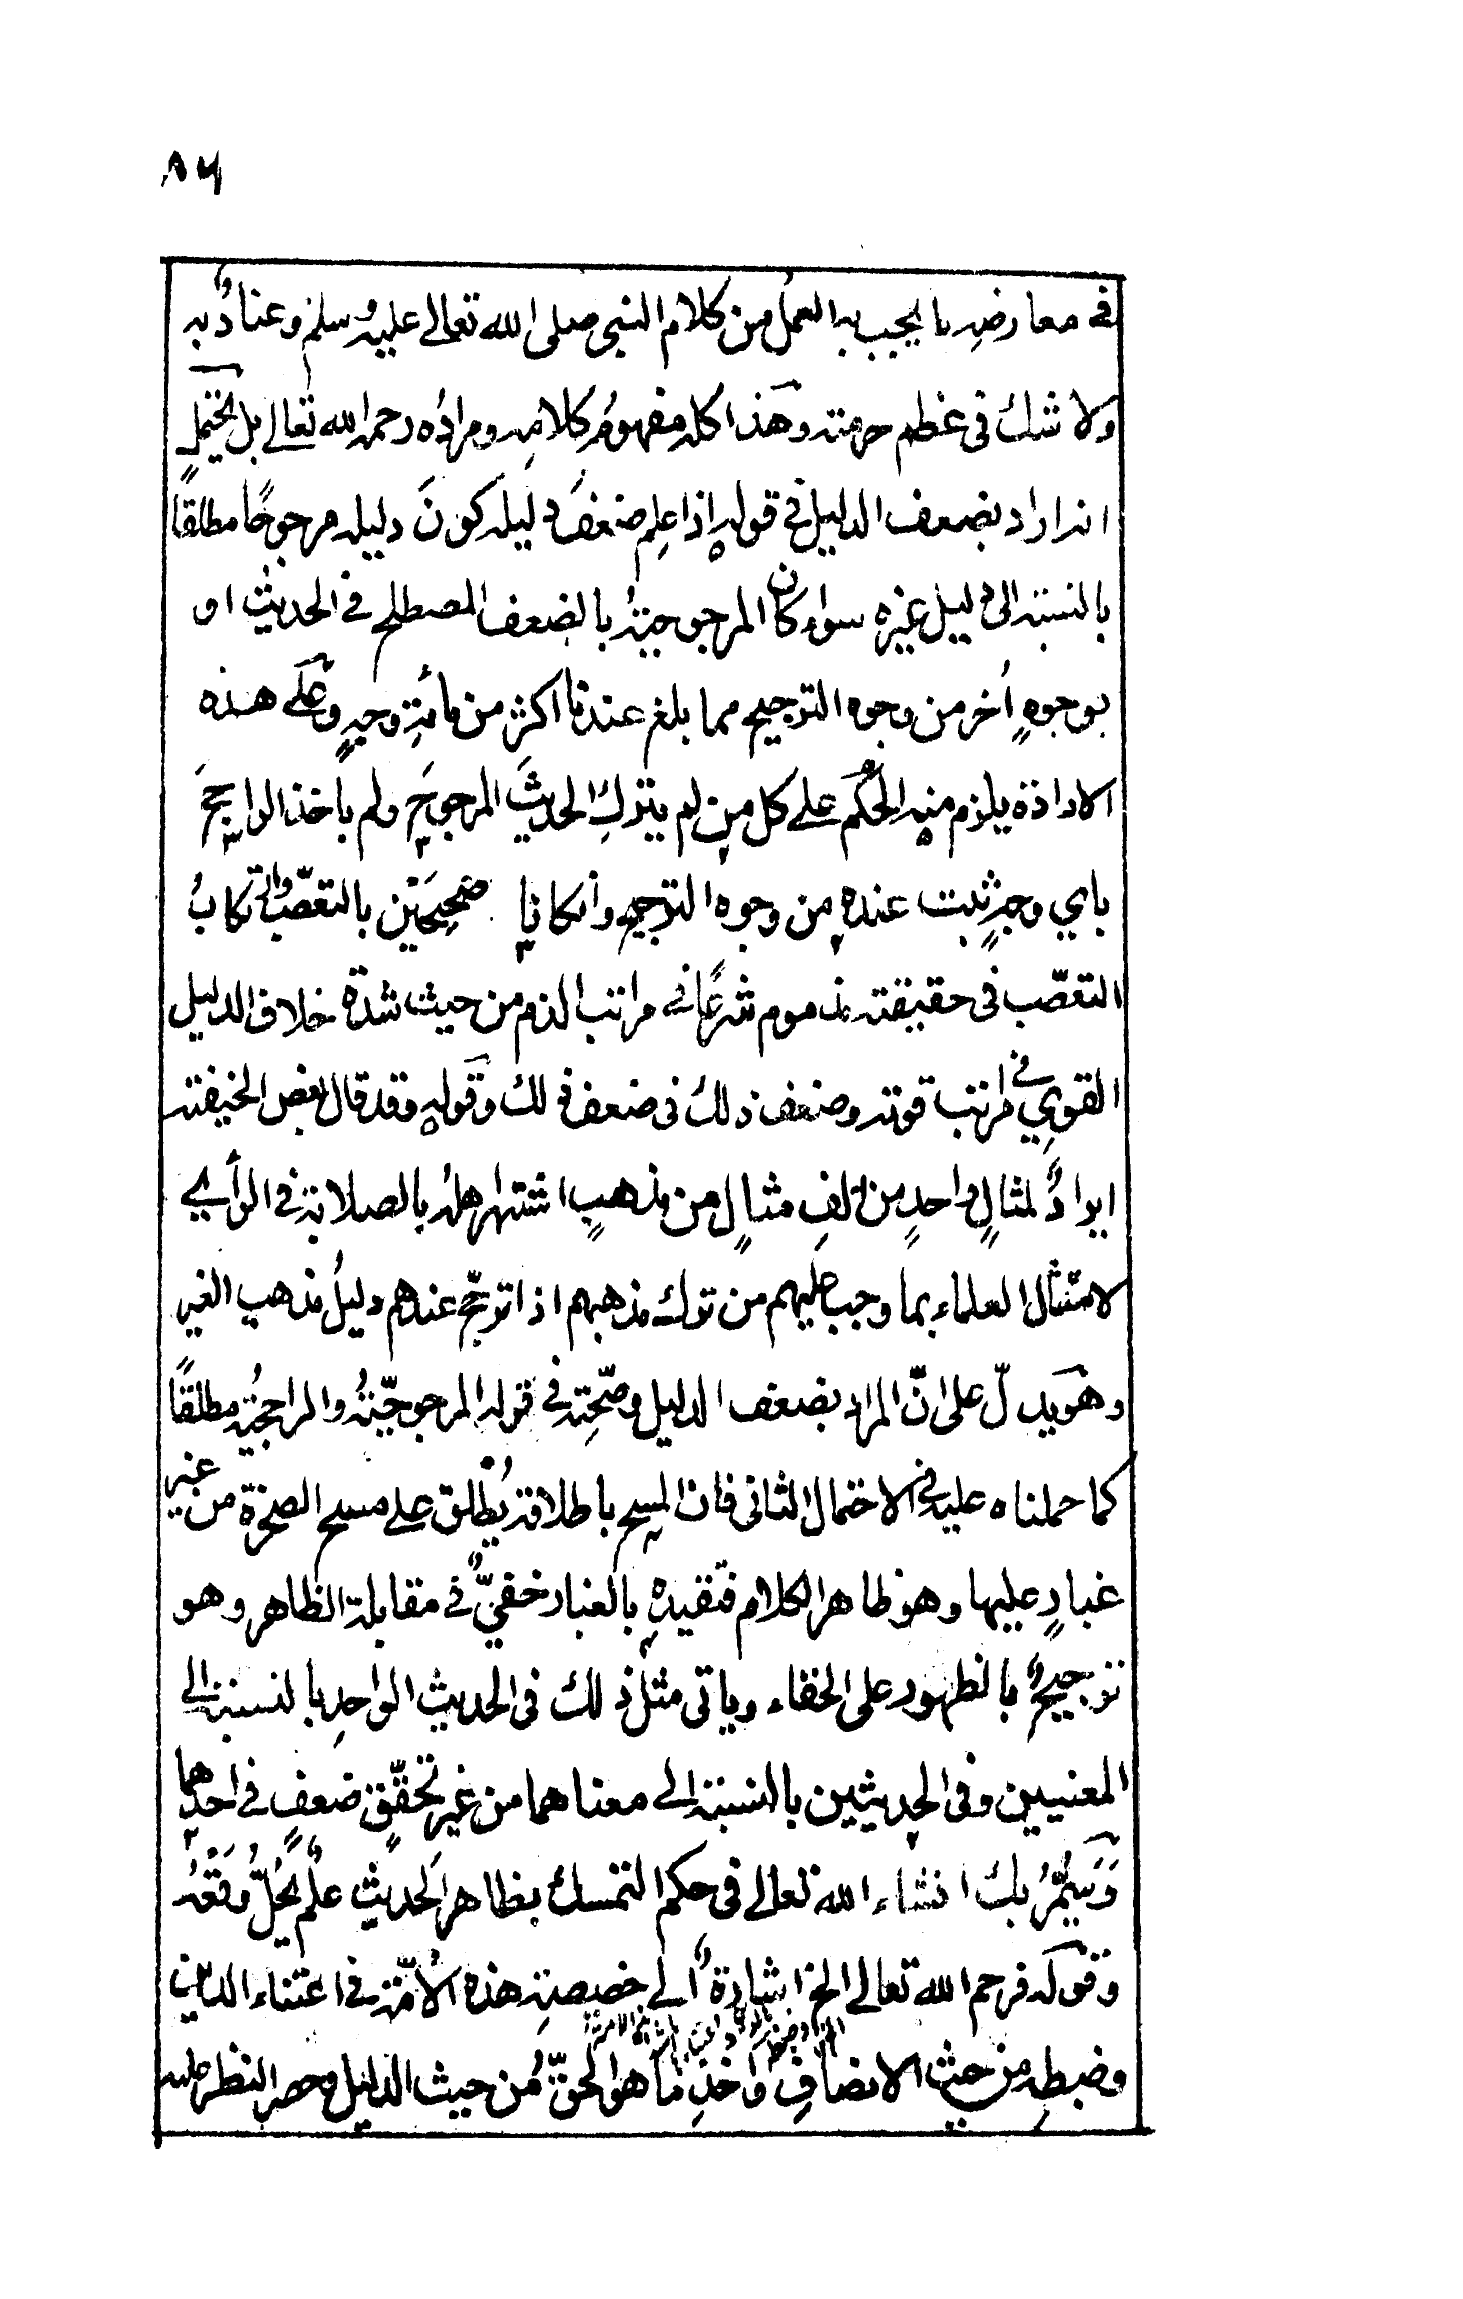 ٨٦
في معارضه ما يجب به العمل من كلام النبي صلى الله تعالى عليه وسلم وعنادٌ به
ولا شك في عظم حرمته وهذا كله مفهومُ كلامه ومرادُه رحمه الله تعالى بل يحتمل
انه اراد بضعف الدليل في قوله اذا علم ضعفَ دليله كونَ دليله مرجوحًا مطلقًا
بالنسبة الى دليل غيره سواء كان المرجوحيةُ بالضعف المصطلح في الحديث او
بوجوهٍ أُخر من وجوه الترجيح مما بلغ عندنا اكثر من مأئةِ وجهٍ وعلى هذه
الاداذة يلزم منه الحكم على كل من لم يتركِ الحديثَ المرجوحَ ولم ياخذ الراجحَ
باي وجهٍ ثبت عنده من وجوه الترجيح وان كانا صحيحَين بالتعصّب وارتكابُ
التعصّب في حقيقته مذموم شرعًا في مراتب الذم من حيث شدة خلاف الدليل
القوي في مراتب قوته وضعف ذلك في ضعف ذلك وقوله وقد قال بعض الحنيفته
ايرادٌ لمثالٍ واحدٍ من الفِ مثالٍ من مذهبٍ اشتهر اهله بالصلابة في الرأي
لامتثال العلماء بما وجب عليهم من ترك مذهبهم اذا ترجّح عندهم دليلُ مذهب الغير
وهو يدلّ على انّ المراد بضعف الدليل وصحّتِه في قوله المرجوحيّةُ والراجحيةُ مطلقًا
كما حملناه عليه في الاحتمال الثاني فان المسح باطلاقه يُطلق على مسح الصخرة من غير
غبارٍ عليها وهو ظاهر الكلام فتقييده بالغبار خفيٌّ في مقابلة الظاهر وهو
ترجيحٌ بالظهور على الخفاء وياتي مثل ذلك في الحديث الواحدِ بالنسبة الى
المعنيين وفي الحديثين بالنسبة الى معناهما من غير تحقّقِ ضعفٍ في احدهما
وَسَيَمُرُّ بك انشاء الله تعالى في حكم التمسك بظاهر الحديث علمٌ يَجُلُّ وقعُه
وقوله فرحم الله تعالى الخ اشارةٌ الى خصيصةِ هذه الأمّة في اعتناء الدين
وضبطِه من حيث الانصافِ واخذِ ما هو الحقُّ من حيث الدليل وحصرِ النظر عليه